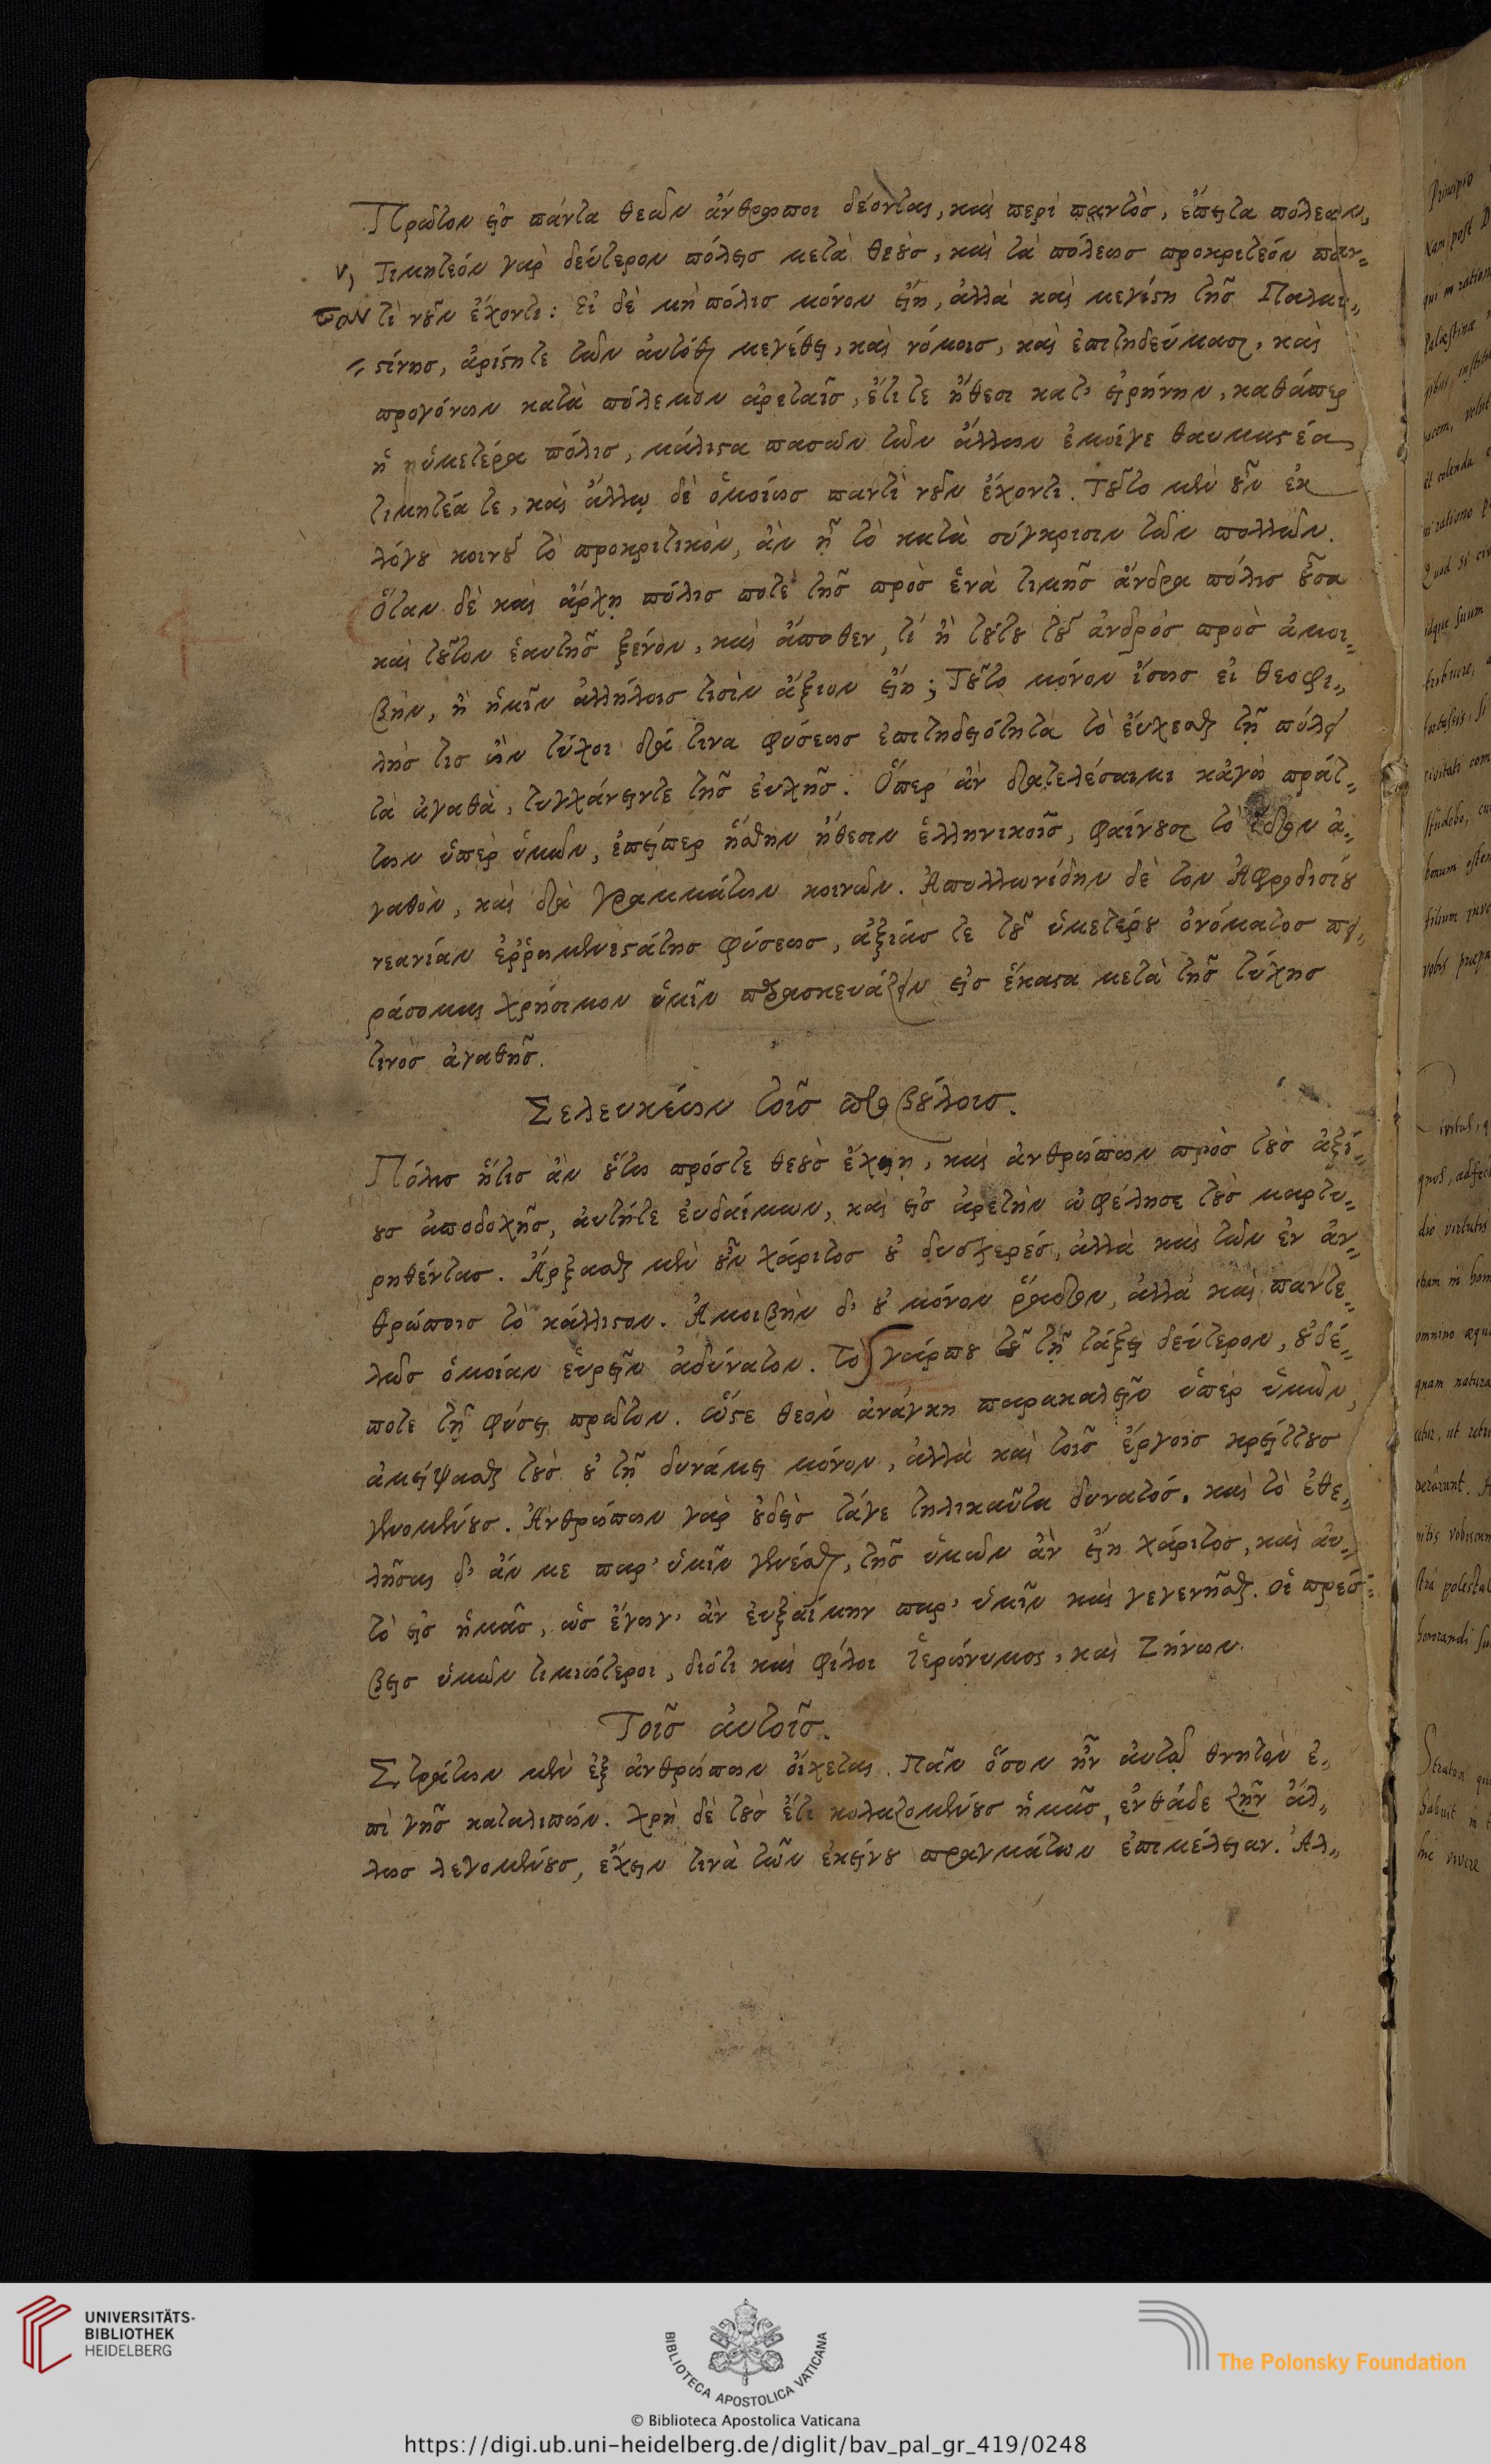 Πρῶτον εἰς πάντα θεῶν ἄνθρωποι δέονται, καὶ περὶ παντὸς, ἔπειτα πόλεων,
ν, Τιμητεόν γαρ δεύτερον πόλεις μετὰ θεοὺς, καὶ τὰ πόλεως προκριτεόν παν-
παντὶ νοῦν ἔχοντι: Εἰ δὲ μὴ πόλις μόνον εἴη, ἀλλὰ καὶ μεγίστη τῆς Παλαι-
στίνης, ἀρίστη τε τῶν αὐτόθι μεγέθει, καὶ νόμοις, καὶ ἐπιτηδεύμασι, καὶ
προγόνων κατὰ πόλεμον ἀρεταῖς, ἔτι τε ἤθεσι κατ' εἰρήνην, καθάπερ
ἡ ὑμετέρα πόλις, μάλιστα πασῶν τῶν ἄλλων ἐμοίγε θαυμαστέα,
τιμητέα τε, καὶ ἄλλῳ δὲ ὁμοίως παντὶ νοῦν ἔχοντι. Τοῦτο μὲν οὖν ἐκ
λόγου κοινοῦ τὸ προκριτικὸν, ἂν ᾖ τὸ κατὰ σύγκρισιν τῶν πολλῶν.
Ὅταν δὲ καὶ ἄρχῃ πόλις ποτὲ τῆς πρὸς ἕνα τιμῆς ἄνδρα πόλις οὖσα
καὶ τοῦτον ἑαυτῆς ξένον, καὶ ἄποθεν, τί ἢ τούτου τοῦ ἀνδρός προς ἀμοι-
βὴν, ἢ ἡμῖν ἀλλήλοις τισὶν ἄξιον εἴη; Τοῦτο μόνον ἴσως εἰ θεοφι-
λὴς τις ὢν τύχοι διά τινα φύσεως ἐπιτηδειότητα τὸ εὔχεσθαι τῇ πόλει
τὰ ἀγαθὰ, τυγχάνειντε τῆς εὐχῆς. Ὅπερ ἂν διατελέσαιμι κἀγὼ πράτ-
των ὑπὲρ ὑμῶν, ἐπείπερ ἥσθην ἤθεσιν ἑλληνικοῖς, φαίνουσι τὸ ἴδιον ἀ-
γαθὸν, καὶ διὰ γραμμάτων κοινῶν. Ἀπολλωνίδην δὲ τον Ἀφροδισίου
νεανίαν ἐρρωμενεστάτης φύσεως, ἀξιάς τε τοῦ ὑμετέρου ὀνόματος πει-
ράσομαι χρήσιμον ὑμῖν παρασκευάζειν εἰς ἕκαστα μετὰ τῆς τύχης
τινὸς ἀγαθῆς.
Σελευκέων τοῖς προβούλοις.
Πόλις ἥτις ἂν οὕτως πρόστε θεοὺς ἔχῃ, καὶ ἀνθρώπων προς τοὺς ἀξί-
ους ἀποδοχῆς, αὐτήτε εὐδαίμων, καὶ εἰς ἀρετὴν ὠφέλησε τοὺς μαρτυ-
ρηθέντας. Ἄρξασθαι μὲν οὖν χάριτος οὐ δυσχερές, ἀλλὰ καὶ τῶν ἐν ἀν-
θρώποις τὸ κάλλιστον. Ἀμοιβὴν δ' οὐ μόνον ῥάδιον, ἀλλὰ καὶ παντε-
λῶς ὁμοίαν εὑρεῖν ἀδύνατον. Τὸ γάρπου τοῦ τῇ τάξει δεύτερον, οὐδέ-
ποτε τῇ φύσει πρῶτον. ὥστε θεὸν ἀνάγκη παρακαλεῖν ὑπὲρ ὑμῶν,
ἀμείψασθαι τοὺς οὐ τῇ δυνάμει μόνον, ἀλλὰ καὶ τοῖς ἔργοις κρείττους
γενομένους. Ἀνθρώπων γὰρ οὐδεὶς τάγε τηλικαῦτα δυνατός. καὶ τὸ ἐθε-
λῆσαι δ' ἄν με παρ' ὑμῖν γενέσθαι, τῆς ὑμῶν ἂν εἴη χάριτος, καὶ αὐ-
τὸ εἰς ἡμᾶς, ὡς ἔγωγ' ἂν εὐξαίμην παρ' ὑμῖν καὶ γεγενῆσθαι. οἱ πρέσ-
βεις ὑμῶν τιμιώτεροι, διότι καὶ φίλοι Ἱερώνυμος, καὶ Ζήνων.
Τοῖς αὐτοῖς.
Στράτων μὲν ἐξ ἀνθρώπων οἴχεται. Πᾶν ὅσον ἦν αὐτῷ θνητὸν ἐ-
πὶ γῆς καταλιπών. Χρὴ δὲ τοὺς ἔτι κολαζομένους ἡμᾶς, ἐνθάδε ζῆν ἄλ-
λως λεγομένους, ἔχειν τινὰ τῶν ἐκείνου πραγμάτων ἐπιμέλειαν. Ἀλ-
Principio
nam post
qui in ration
Palæstinæ
et colenda
ni ratione
Quod si civ
idque suum
tribuere,
civitati com
studebo, cu
bonum osten
vobis præpa
Civitas, q
quos, adfec
dio virtutis
etiam in hom
omnino æqua
quam natura
etur, ut retri
verarunt. A
nitis vobiscum
stra potestat
honorandi su
Straton qui
habuit in t
hic vivere
UNIVERSITÄTS-
BIBLIOTHEK
HEIDELBERG
BIBLIOTECA APOSTOLICA VATICANA
The Polonsky Foundation
© Biblioteca Apostolica Vaticana
https://digi.ub.uni-heidelberg.de/diglit/bav_pal_gr_419/0248